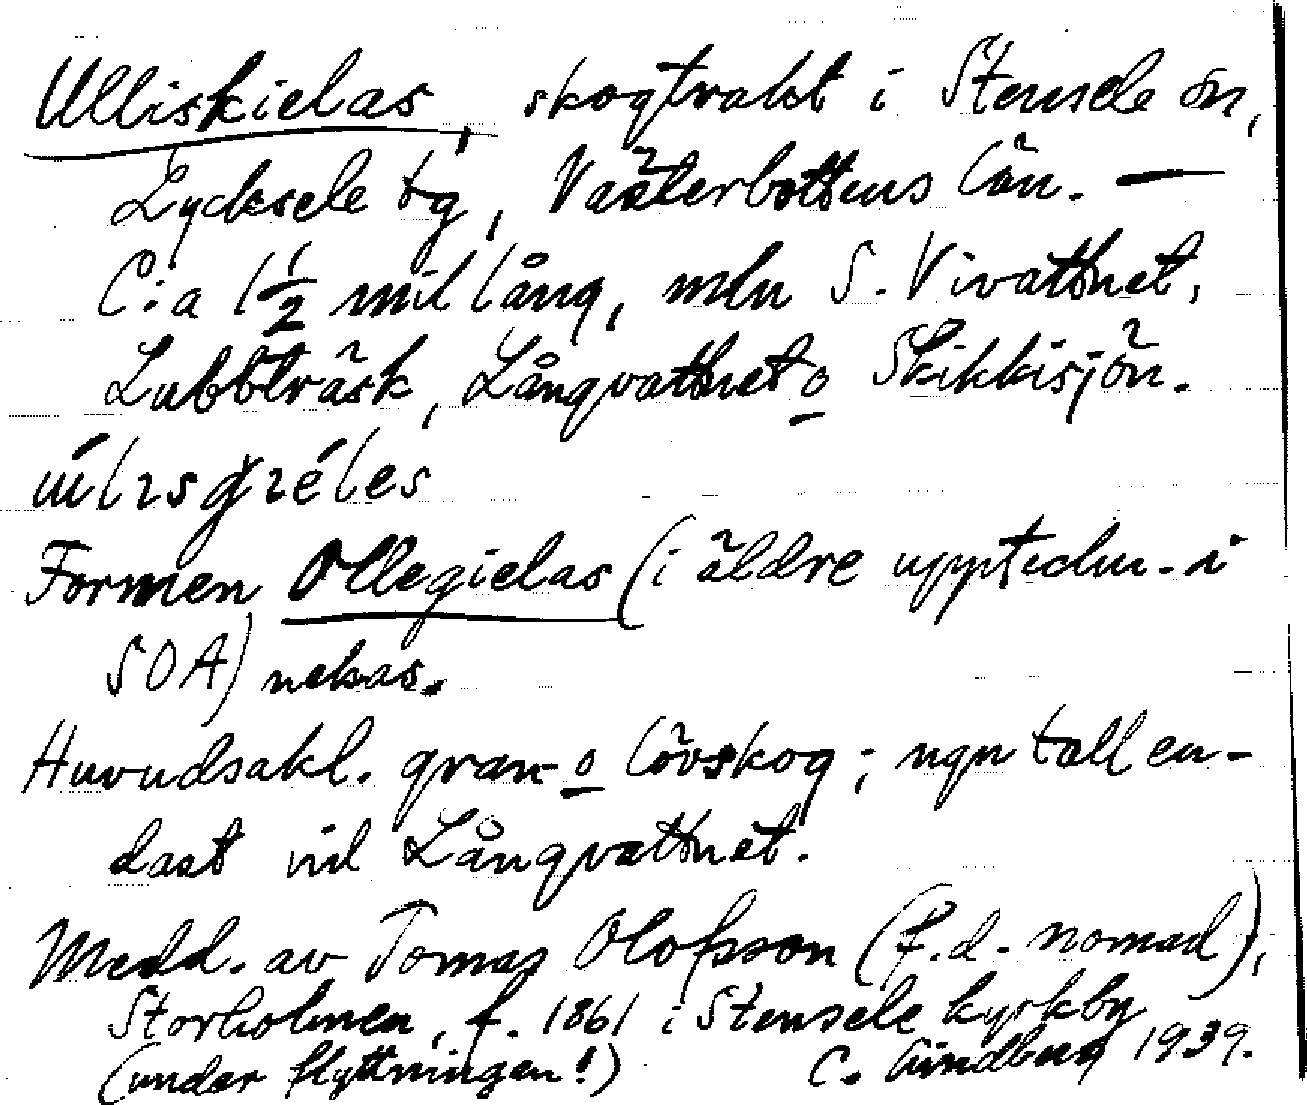 Ulliskielas, skogtrakt i Stensele sn,
Lycksele tg, Västerbottens län. —
C:a 1½ mil lång, mln S. Vivattnet,
Lubbträsk, Långvattnet o Skikkisjön.
Formen Ollegielas (i äldre uppteckn. i
SOA) nekas.
Huvudsakl. gran- o lövskog; ngn tall en-
dast vid Långvattnet.
Medd. av Tomas Olofsson (f.d. nomad),
Storholmen, f. 1861 i Stensele kyrkby
(under flyttningen!) C. Lindberg 1939.